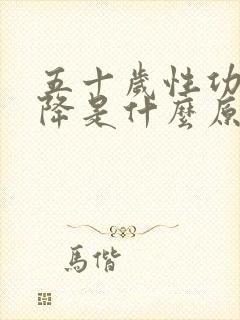 五十歲性功
降是什麼原
馬偕